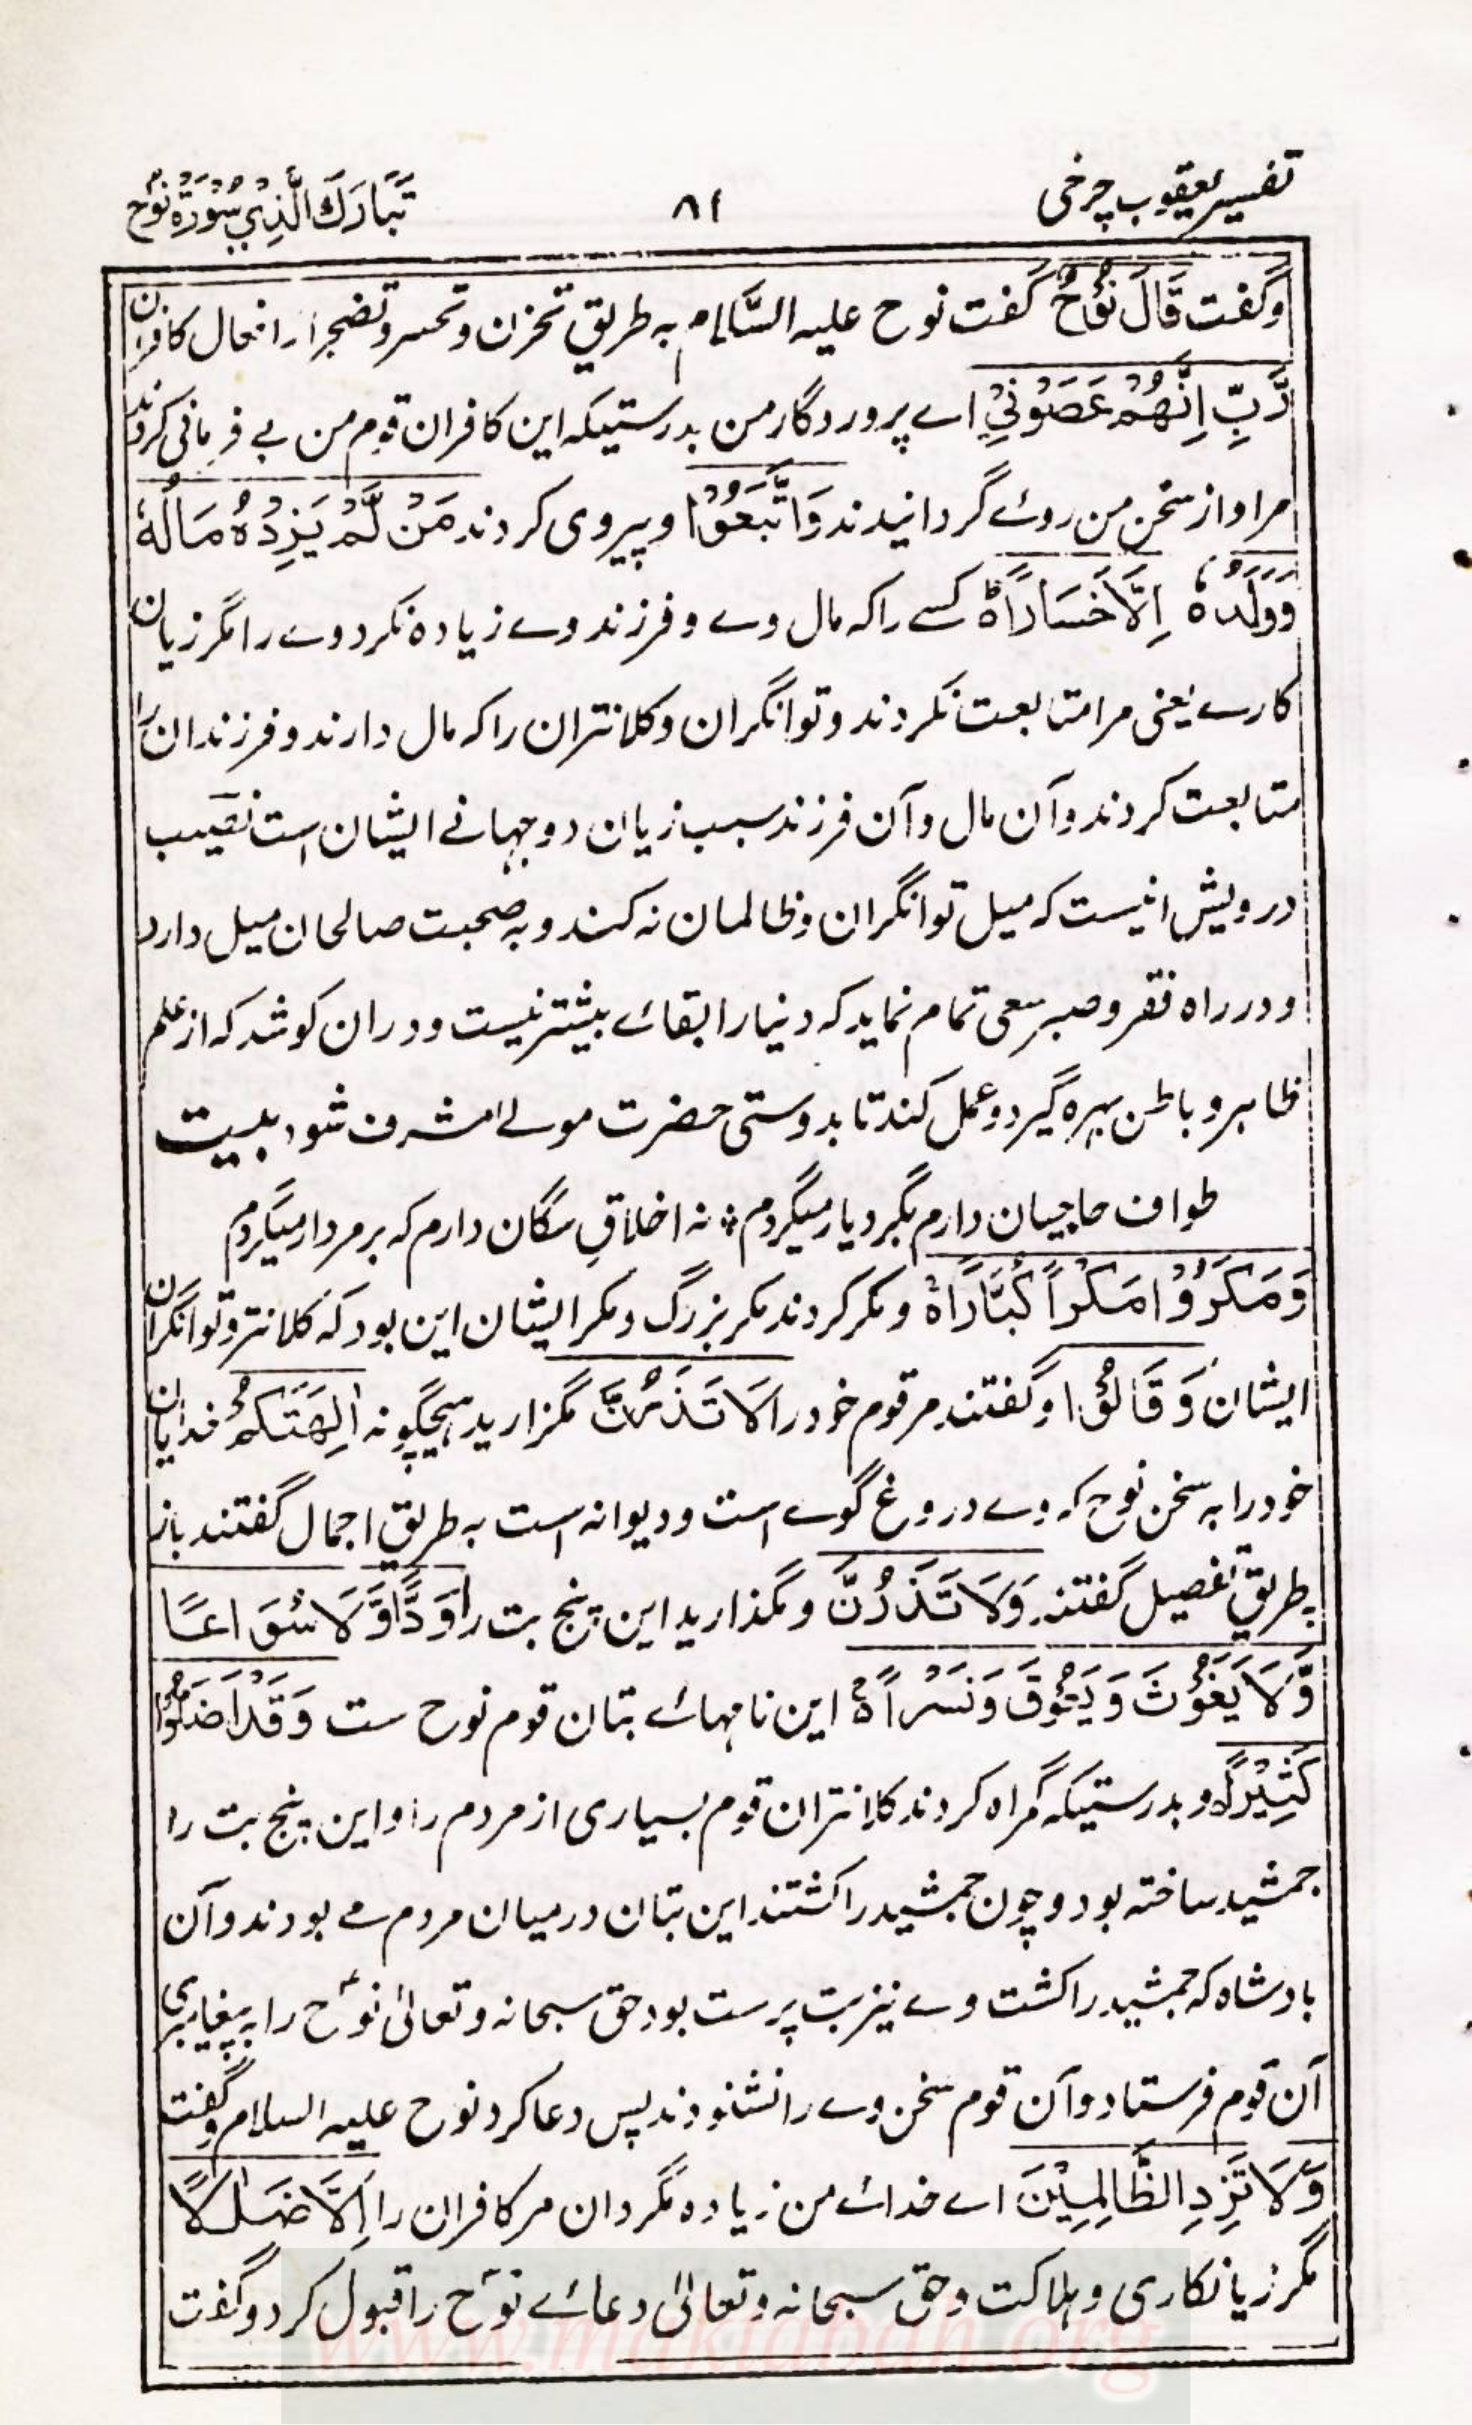 تفسیر یعقوب چرخی
۸۶
تَبَارَكَ الَّذِيْ سُوْرَةُ نُوْحٍ
وگفت قَالَ نُوْحٌ گفت نوح علیہ السَّلام بہ طریقِ تحزن و تحسر و تضجر از افعال کافران
رَّبِّ اِنَّهُمْ عَصَوْنِيْ اے پروردگار من بدرستیکہ این کافران قوم من بے فرمانی کردند
مرا و از سخن من روئے گردانیدند وَاتَّبَعُوْا و پیروی کردند مَنْ لَّمْ يَزِدْهُ مَالُهٗ
وَوَلَدُهٗ اِلَّا خَسَارًا۝ کسے را کہ مال وے و فرزند وے زیادہ نکرد وے را مگر زیان
کارے یعنی مرا متابعت نکردند و توانگران و کلانتران را کہ مال دارند و فرزندان را
متابعت کردند و آن مال و آن فرزند سبب زیان دو جہانے ایشان است نصیب
درویش انیست کہ میل توانگران و ظالمان نہ کند و بہ صحبت صالحان میل دارد
و در راہ فقر و صبر سعی تمام نماید کہ دنیا را بقائے بیشتر نیست و دران کوشد کہ از علم
ظاہر و باطن بہرہ گیرد و عمل کند تا بدوستی حضرت مولےٰ مشرف شود بیت
طواف حاجیان دارم بگرد یار میگردم ؞ نہ اخلاقِ سگان دارم کہ بر مردار میگردم
وَمَكَرُوْا مَكْرًا كُبَّارًا۝ و مکر کردند مکر بزرگ و مکر ایشان این بود کہ کلانتر و توانگران
ایشان وَقَالُوْا و گفتند مر قوم خود را لَا تَذَرُنَّ مگزارید ہیچگونہ اٰلِهَتَكُمْ خدایان
خود را بہ سخن نوح کہ وے دروغ گوے است و دیوانہ است بہ طریقِ اجمال گفتند باز
بطریقِ تفصیل گفتند وَلَا تَذَرُنَّ و مگذارید این پنج بت را وَدًّا وَّلَا سُوَاعًا
وَّلَا يَغُوْثَ وَيَعُوْقَ وَنَسْرًا۝ این نامہائے بتان قوم نوح ست وَقَدْ اَضَلُّوْا
كَثِيْرًا و بدرستیکہ گمراہ کردند کلانتران قوم بسیاری از مردم را و این پنج بت را
جمشید ساختہ بود و چون جمشید را کشتند این بتان درمیان مردم مے بودند و آن
بادشاہ کہ جمشید را کشت وے نیز بت پرست بود حق سبحانہ و تعالیٰ نوحؑ را بہ پیغامبری
آن قوم فرستاد و آن قوم سخن وے را نشنودند پس دعا کرد نوح علیہ السلام و گفت
وَلَا تَزِدِ الظَّالِمِيْنَ اے خدائے من زیادہ مگردان مر کافران را اِلَّا ضَلٰلًا
مگر زیانکاری و ہلاکت و حق سبحانہ و تعالیٰ دعائے نوحؑ را قبول کرد و گفت
www.maktabah.org